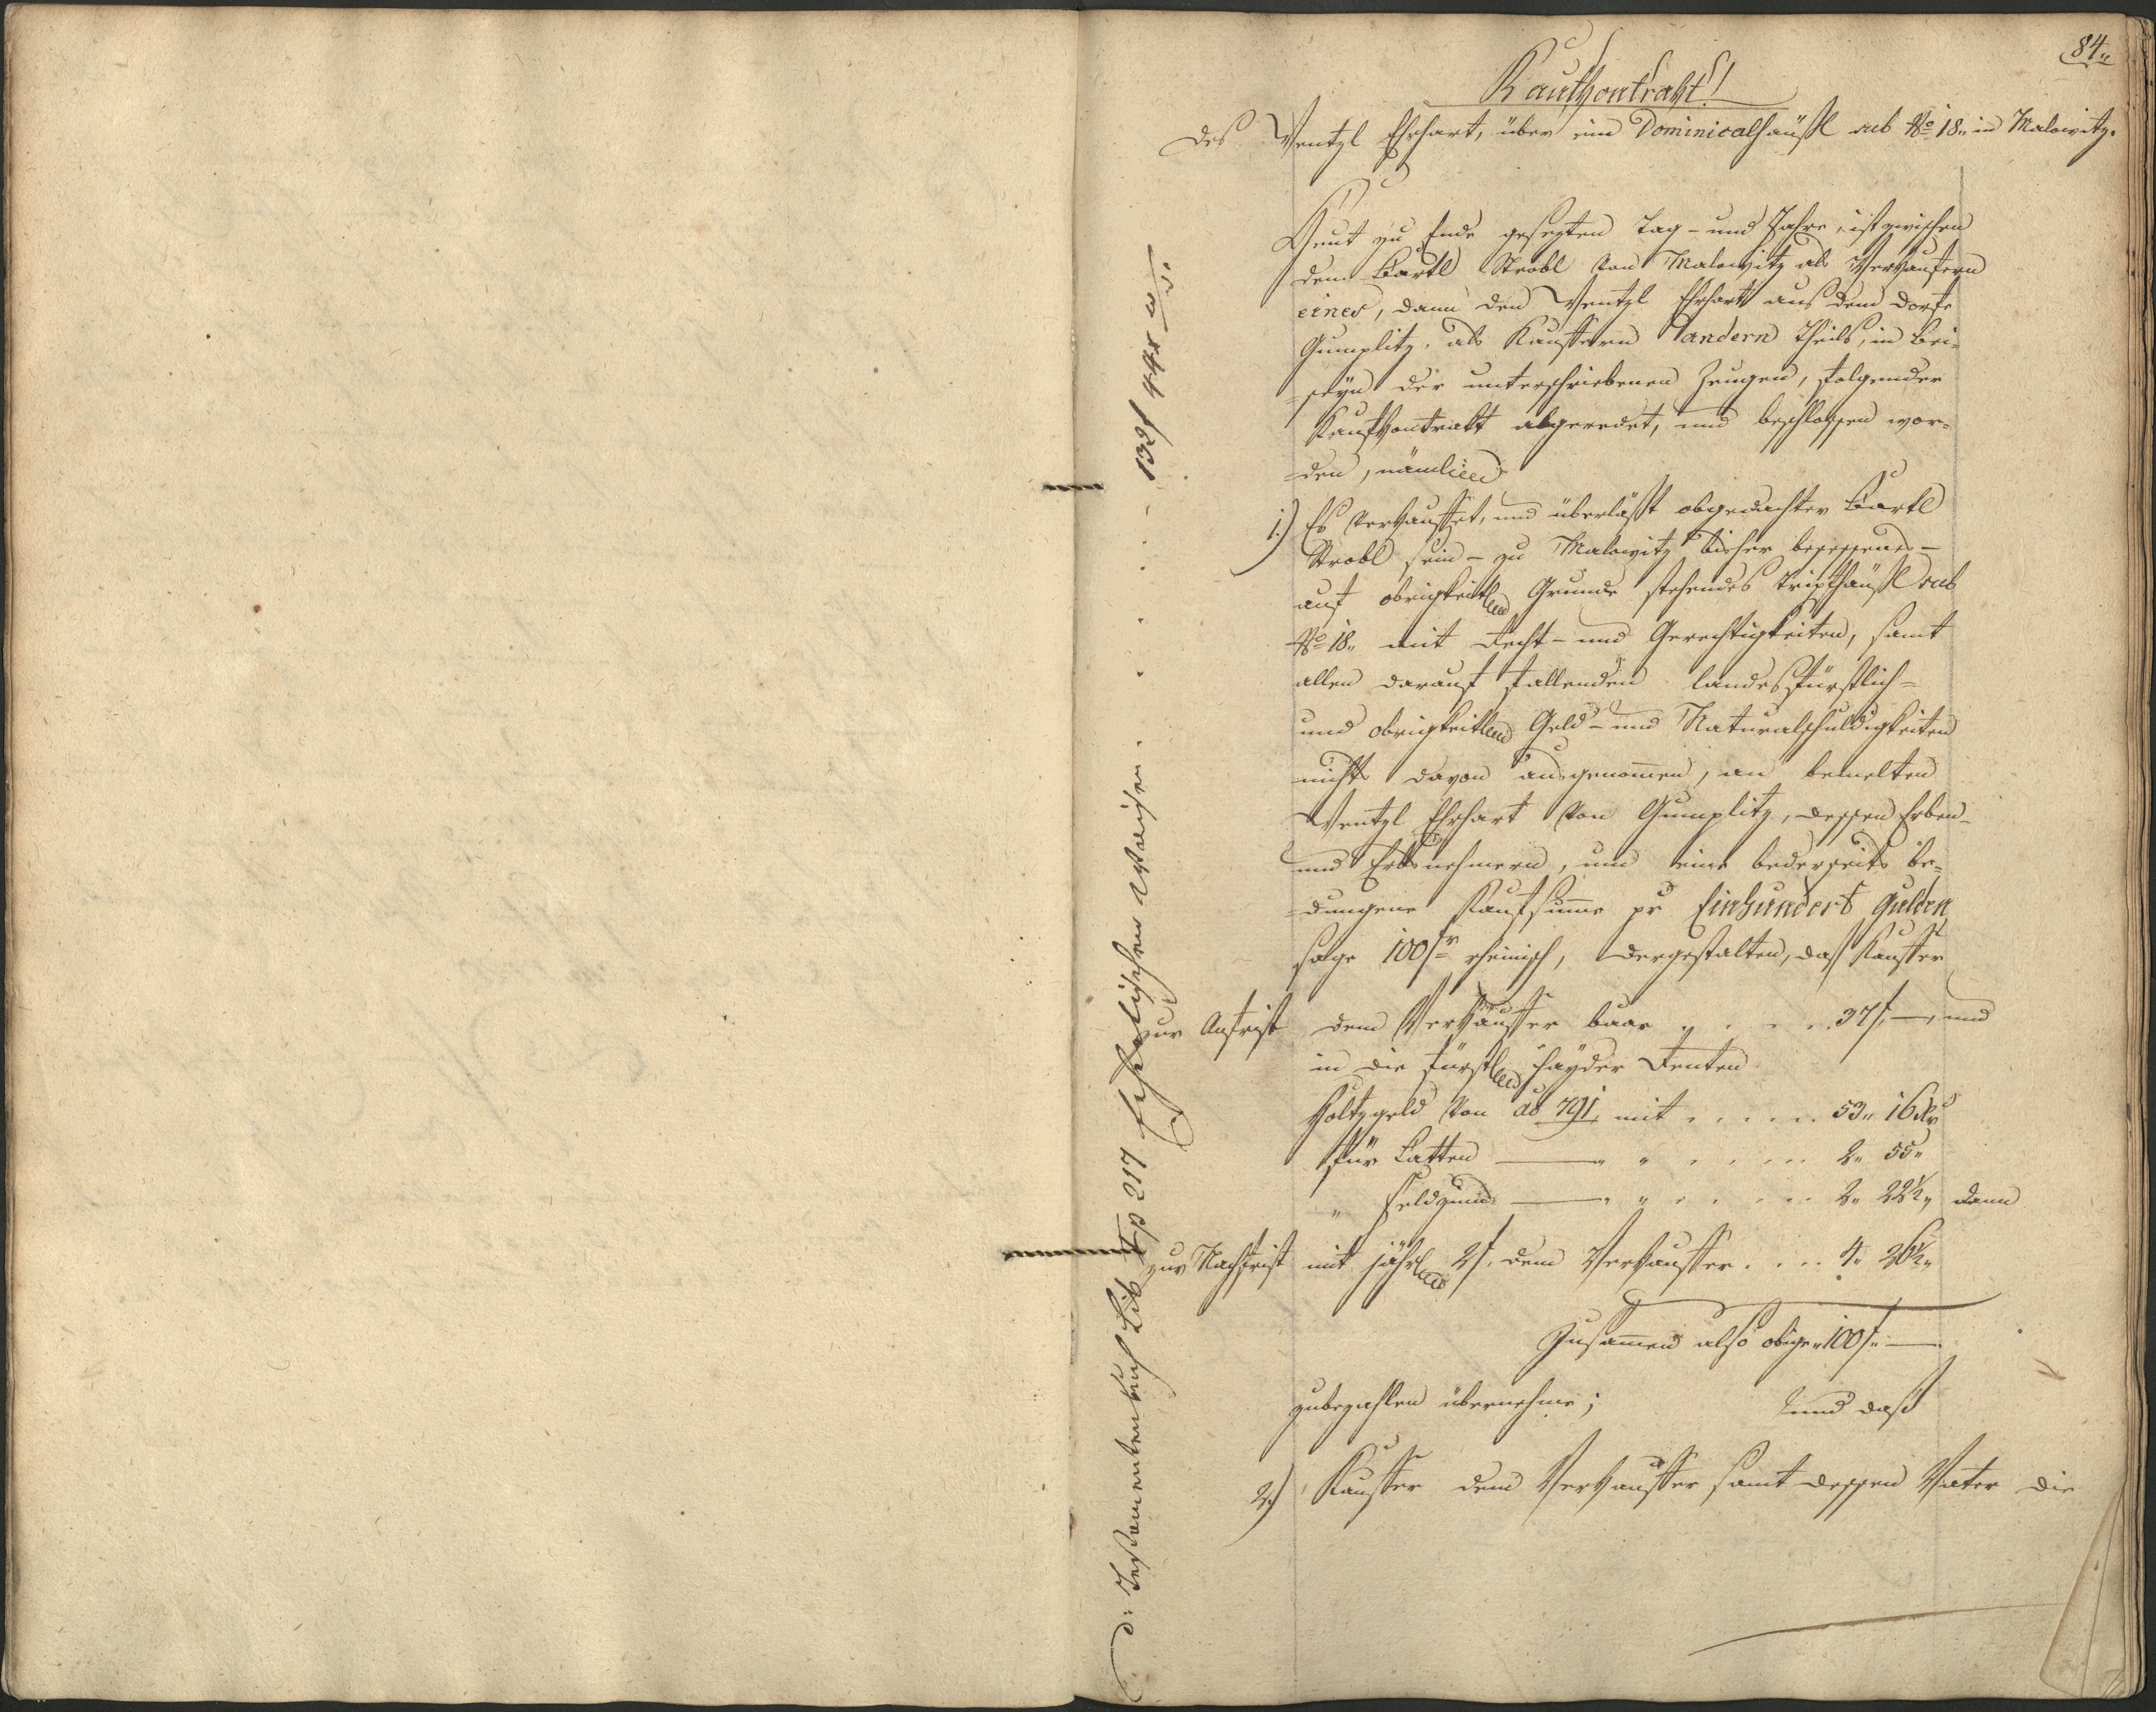 84.,
Kaufkontrakt!
des Wentzl Ehrhart, über ein Dominicalhäußl sub No 18., in Malowitz.
Heut zu Ende gesezten Tag- und Jahre, ist zwischen
dem Bartl Strobl von Malowitz als Verkaufern
eines, dann den Wentzl Ehrhart aus dem Dorfe
Gumplitz, als Kauffern andern Theils, in Bei-
=seyn der unterschriebenen Zeugen, folgender
Kaufkontrakt abgeredet, und beschlossen wor-
=den, nämlich
1.) Es verkauffet, und überläßt obgedachter Bartl
Strobl sein - zu Malowitz bisher besessenes -
auf obrigkeitlichen Grunde stehendes Tripfhäußl sub
No 18., mit Recht- und Gerechtigkeiten, samt
allen darauf fallenden landesfürstlich-
und obrigkeitlichen Geld- und Naturalschuldigkeiten
nichts davon ausgenommen, an bemelten
Wentzl Ehrhart von Gumplitz, dessen Erben-
und Erbsnehmern, um eine bederseits be-
=dungene Kaufsumme pr Einhundert Gulden
sage 100 fr rheinisch, dergestalten, daß Kauffer
zur Anfrist dem Verkauffer baar . . . . 37 f, —, und
in die fürstlichen Hayder Renten
Holtzgeld von ao 791, mit . . . . . 53., 16 kr
für Latten — " " . . . . . 2., 55.,
" Feldzins — " " . . . . . 2., 22½., dann
zur Nachfrist mit jährlichen 2 f. dem Verkauffer . . . . 4., 26½.,
Zusammen also obige 100 f. —
zubezahlen übernehme; und daß
2.) Kauffer dem Verkauffer samt dessen Vater die
d: Testamentenbuch Lib I p 217 Waisen . . . . . . . 132 f 44 x